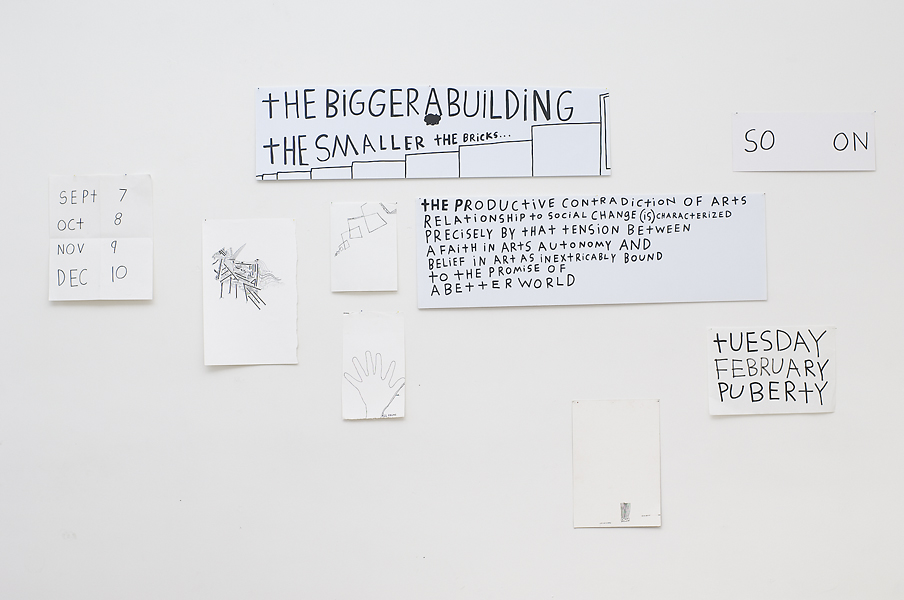 THE BIGGER A BUILDING
THE SMALLER THE BRICKS...
SO ON
SEPT 7
OCT 8
NOV 9
DEC 10
THE PRODUCTIVE CONTRADICTION OF ARTS
RELATIONSHIP TO SOCIAL CHANGE (IS) CHARACTERIZED
PRECISELY BY THAT TENSION BETWEEN
A FAITH IN ARTS AUTONOMY AND
BELIEF IN ART AS INEXTRICABLY BOUND
TO THE PROMISE OF
A BETTER WORLD
TUESDAY
FEBRUARY
PUBERTY